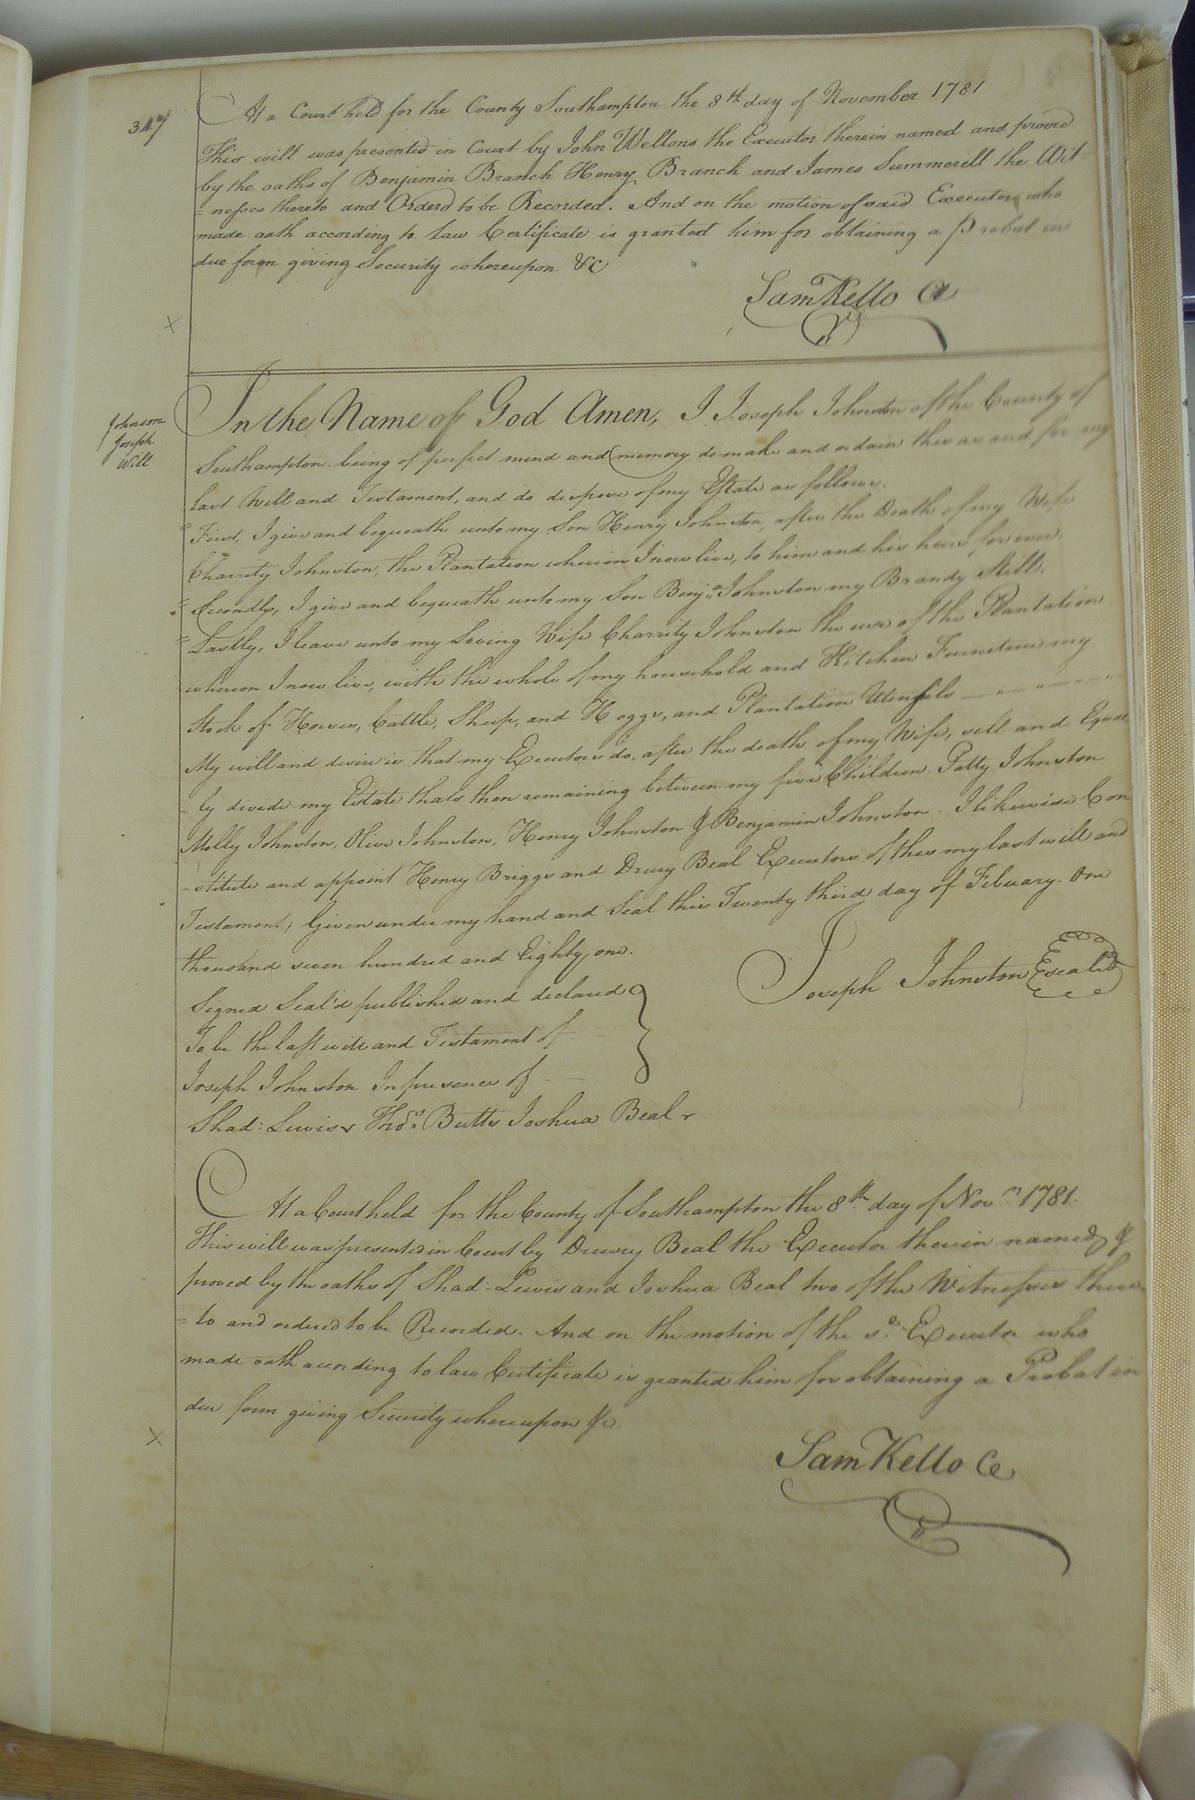 347
At a Court held for the County Southampton the 8th day of November 1781
This will was presented in Court by John Wellons the Executor therein named and proved
by the oaths of Benjamin Branch Henry Branch and James Summerell the Wit
=nesses thereto and Orderd to be Recorded. And on the motion of said Executor who
made oath according to Law Certificate is granted him for obtaining a Probat in
due form giving Security whereupon &c
Sam Kello Cl
Johnson
Joseph
Will
In the Name of God Amen, I Joseph Johnston of the County of
Southampton being of perfect mind and memory do make and ordain this as and for my
last Will and Testament, and do dispose of my Estate as follows.
First, I give and bequeath unto my Son Henry Johnston, after the Death of my Wife
Charrity Johnston, the Plantation whereon I now live, to him and his heirs for ever.
Secondly, I give and bequeath unto my Son Benja. Johnston my Brandy Still.
Lastly, I leave unto my Loving Wife Charrity Johnston the use of the Plantation
whereon I now live, with the whole of my household and Kitchen Furneture my
Stock of Horses, Cattle, Sheep, and Hoggs, and Plantation Utensils
My will and desire is, that my Executors do, after the death of my Wife, sell and Equal
-ly divide my Estate thats then remaining between my five Children Patty Johnston
Molly Johnston, Olive Johnston, Henry Johnston & Benjamin Johnston. I likewise Con
-stitute and appoint Henry Briggs and Drury Beal Executors of this my last will and
Testament, Given under my hand and Seal this Twenty third day of Febuary. One
thousand seven hundred and Eighty one.
Joseph Johnston Eseal'd
Signed Seal'd published and declared
To be the last will and Testament of
Joseph Johnston In presence of
Shad: Lewis Thos. Butts Joshua Beal
At a Court held for the County of Southampton the 8th day of Novr. 1781.
This will was presented in Court by Drury Beal the Executor therein named &
proved by the oaths of Shad. Lewis and Joshua Beal two of the Witnesses there
=to and ordered to be Recorded. And on the motion of the sd. Executor who
made oath according to law Certificate is granted him for obtaining a Probat in
due form giving Security whereupon &c.
Sam Kello Cl